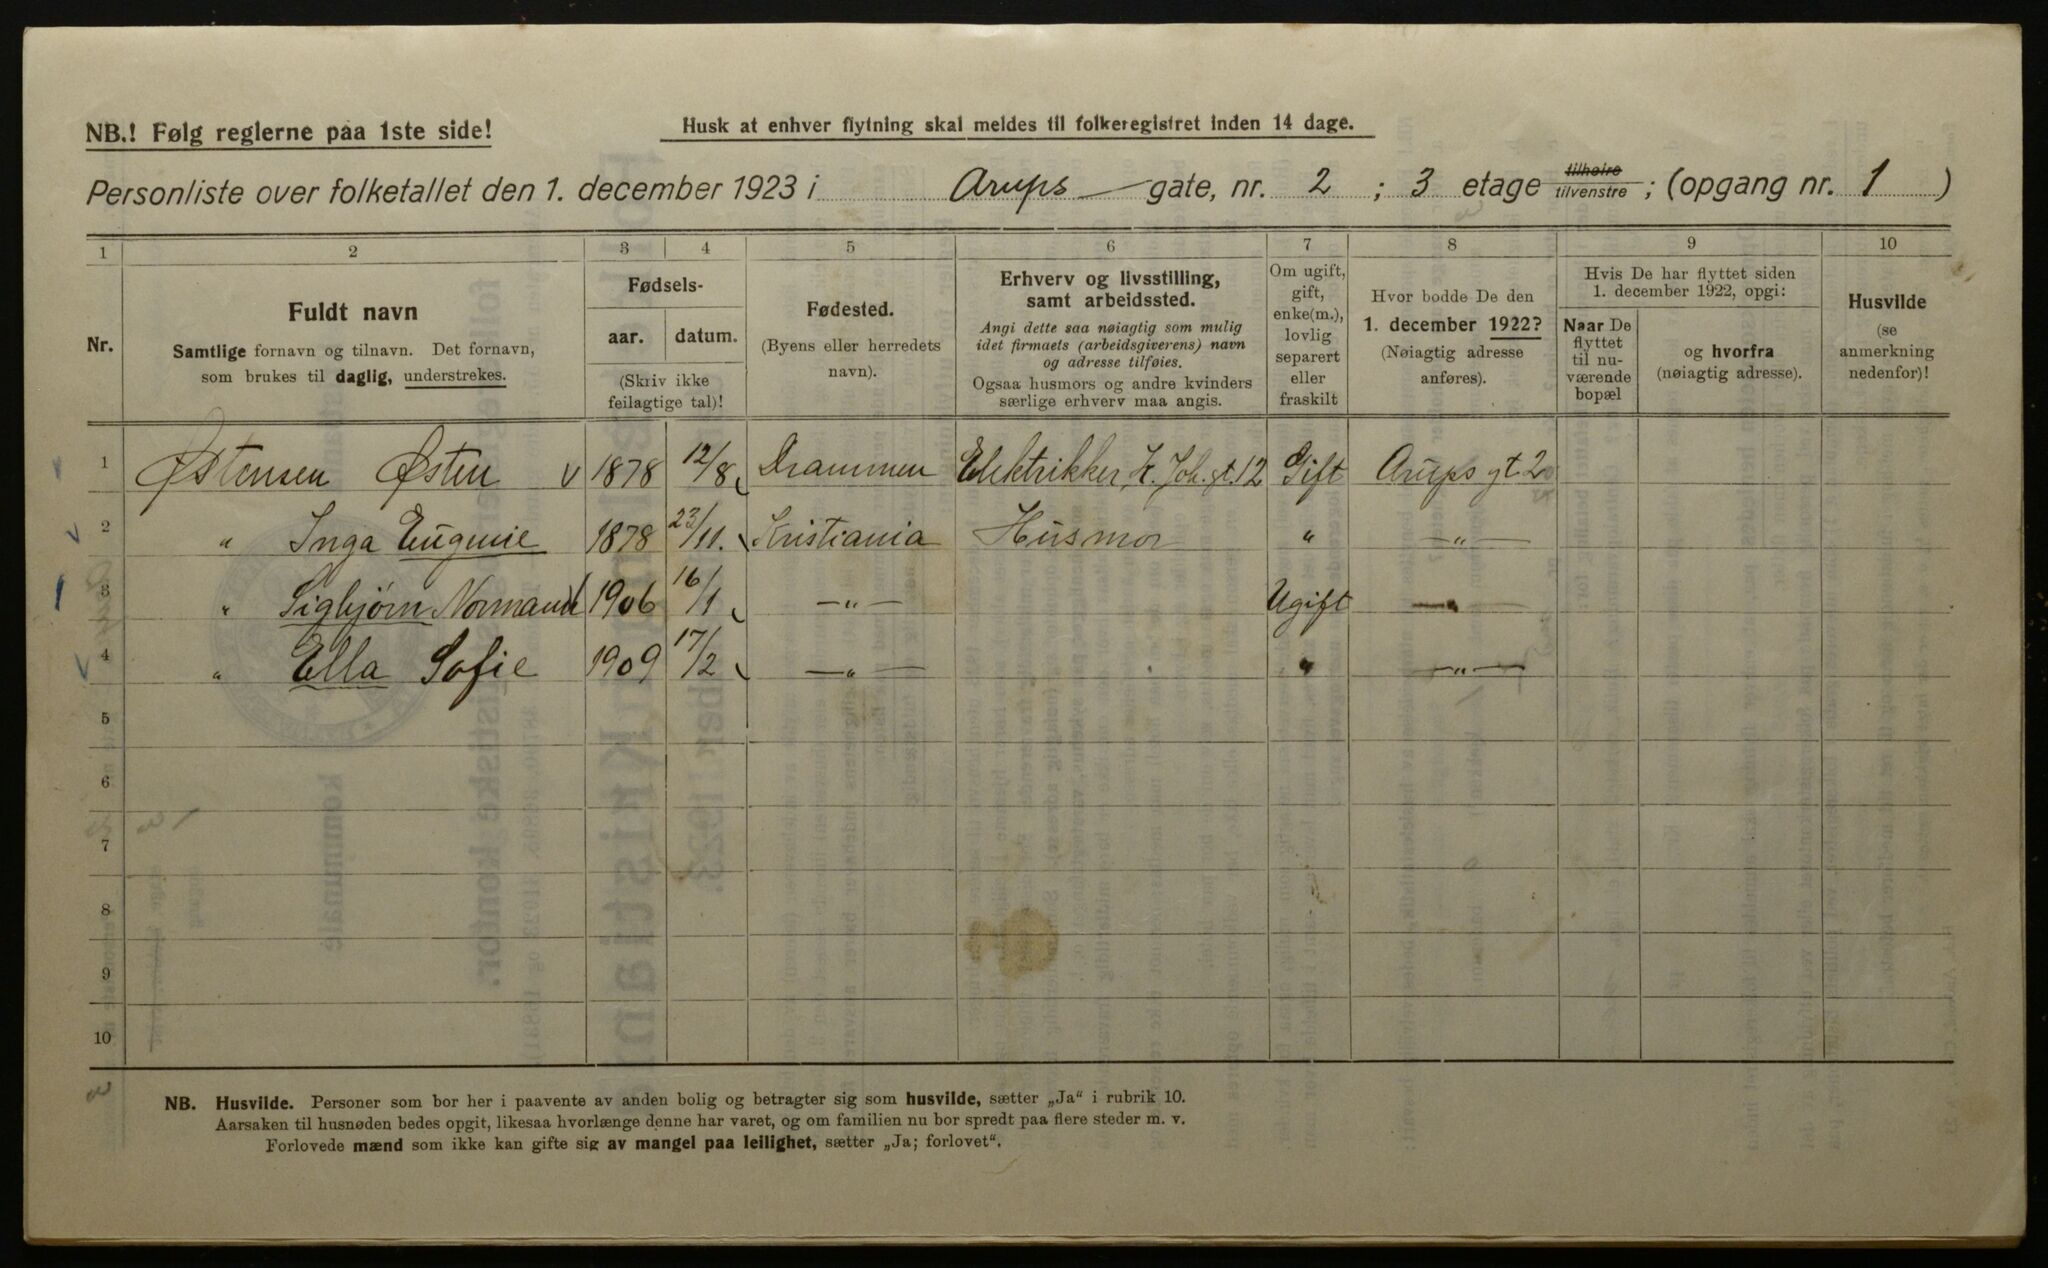 NB.! Følg reglerne paa 1ste side!
Husk at enhver flytning skal meldes til folkeregistret inden 14 dage.
Personliste over folketallet den 1. december 1923 i Arups gate, nr. 2 ; 3 etage tilhøire tilvenstre ; (opgang nr. 1 )
1 2 3 4 5 6 7 8 9 10
Nr.
Fuldt navn
Samtlige fornavn og tilnavn. Det fornavn,
som brukes til daglig, understrekes.
Fødsels-
aar. datum.
(Skriv ikke
feilagtige tal)!
Fødested.
(Byens eller herredets
navn).
Erhverv og livsstilling,
samt arbeidssted.
Angi dette saa nøiagtig som mulig
idet firmaets (arbeidsgiverens) navn
og adresse tilføies.
Ogsaa husmors og andre kvinders
særlige erhverv maa angis.
Om ugift,
gift,
enke(m.),
lovlig
separert
eller
fraskilt
Hvor bodde De den
1. december 1922?
(Nøiagtig adresse
anføres).
Hvis De har flyttet siden
1. december 1922, opgi:
Naar De
flyttet
til nu-
værende
bopæl
og hvorfra
(nøiagtig adresse).
Husvilde
(se
anmerkning
nedenfor)!
1 Østensen Østen v 1878 12/8 Drammen Elektrikker K. Joh. gt. 12 Gift Arups gt. 2
2 " Inga Eugenie 1878 23/11. Kristiania Husmor " —"—
3 " Sigbjørn Normann 1906 16/1 —"— Ugift —"—
4 " Ella Sofie 1909 17/2 —"— " —"—
5
6
7
8
9
10
NB. Husvilde. Personer som bor her i paavente av anden bolig og betragter sig som husvilde, sætter „Ja" i rubrik 10.
Aarsaken til husnøden bedes opgit, likesaa hvorlænge denne har varet, og om familien nu bor spredt paa flere steder m. v.
Forlovede mænd som ikke kan gifte sig av mangel paa leilighet, sætter „Ja; forlovet".